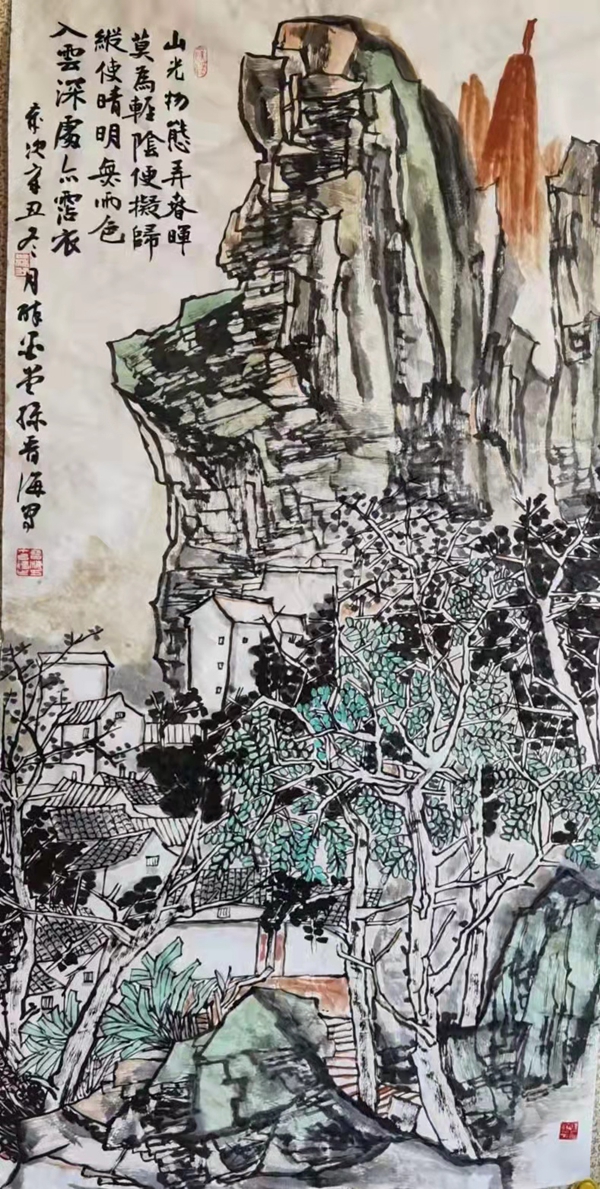 山光物態弄春暉
莫為輕陰便擬歸
縱使晴明無雨色
入雲深處亦霑衣
歲次辛丑冬月醉墨堂孫海寫